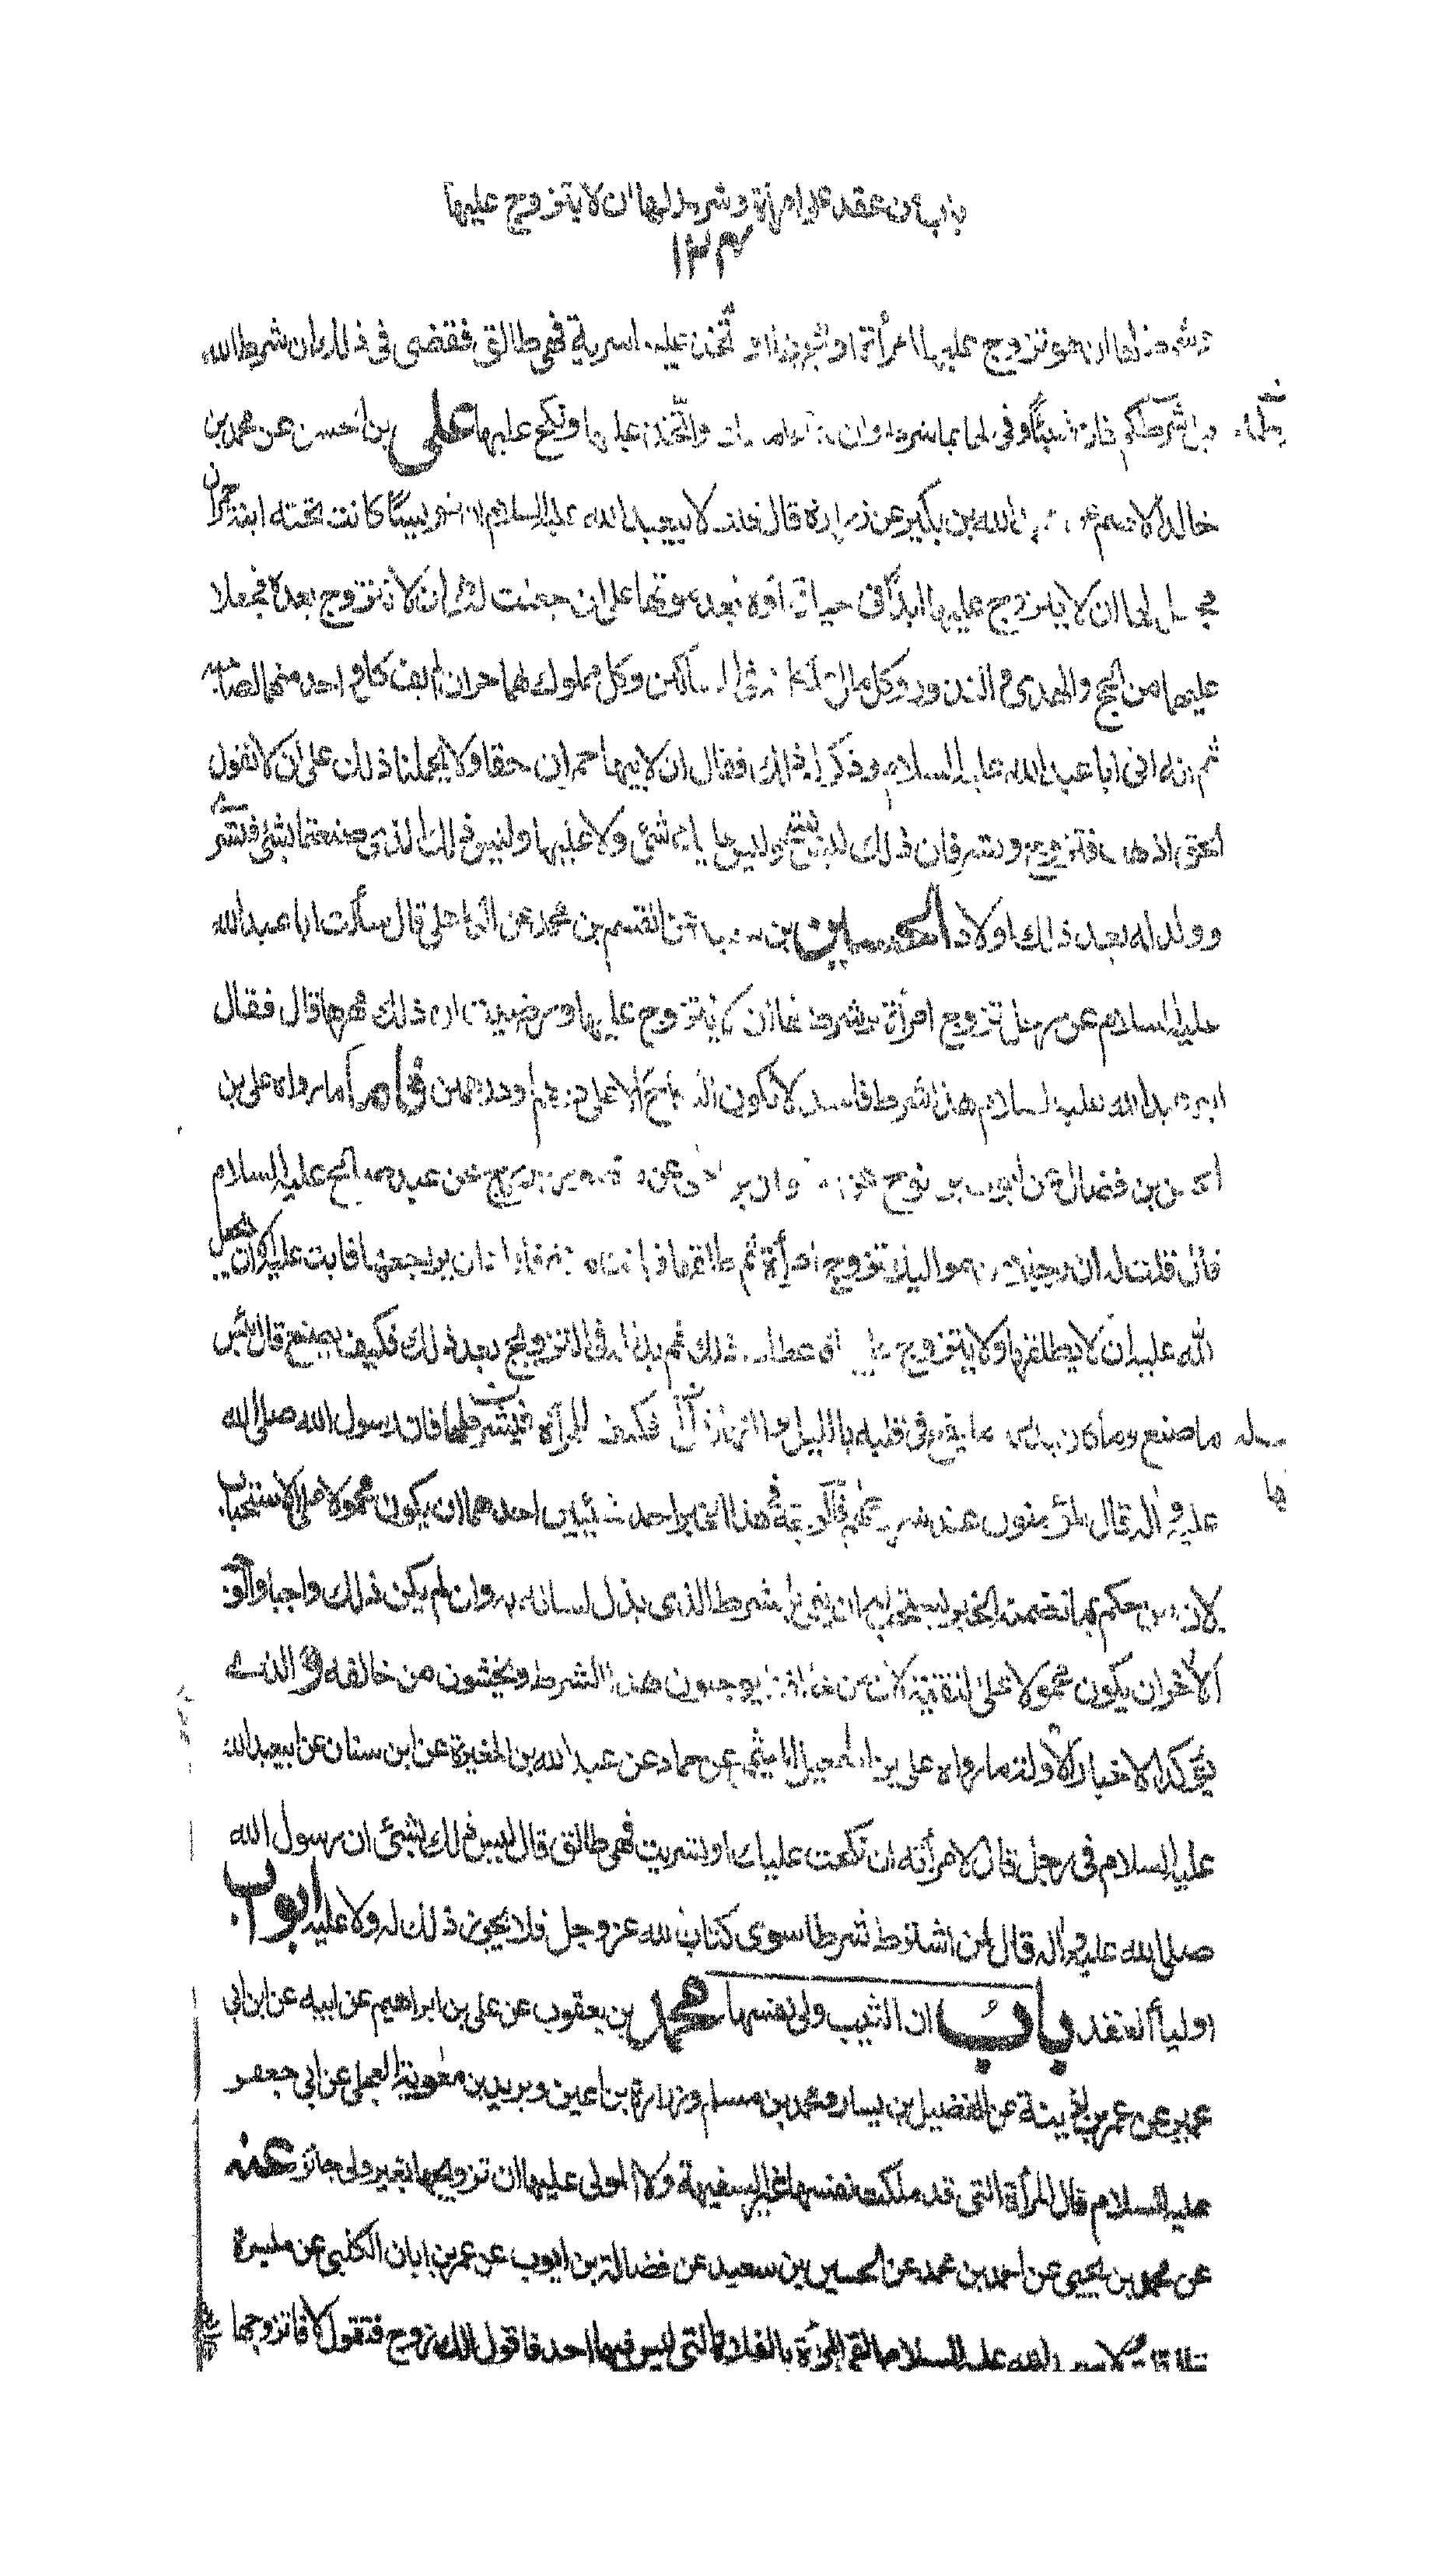 باب من عقد على امرأة وشرط لها ان لا يتزوج عليها
١٢٣
لها ان هو تزوج عليها امرأة او او تخذ عليها سرية فهي طالق فقضى في ذلك ان شرط الله
قبل شرطكم فان شاء وفى لها بما شرط وان شاء واتخذ عليها ونكح عليها علي بن الحسن عن محمد بن
خالد الاصم عن الله بن بكير عن زرارة قال لابيعبدالله عليه السلام ان ضريسا كانت تحته ابنة حمران
فجعل لها ان لا يتزوج عليها ابدا في حياتها وبعد موتها على ان جعلت له ان لا تتزوج بعده فجعلا
عليهما من الحج والهدي والنذور وكل مال في المساكين وكل مملوك لهما حران لم يف كل واحد منهما لصاحبه
ثم انه اتى ابا عبدالله عليه السلام وذكر له ذلك فقال ان لابيها حمران حقا ولا يحملنا ذلك على ان لا نقول
الحق اذهب فتزوج وتسر فان ذلك ليس بشئ وليس عليك شئ ولا عليها وليس ذلك الذي صنعتما بشئ فتسرى
وولد له بعد ذلك اولاد الحسين بن عن القسم بن محمد عن علي قال سألت ابا عبدالله
عليه السلام عن رجل تزوج امرأة وشرط لها ان لا يتزوج عليها ورضيت ان ذلك مهرها قال فقال
ابو عبدالله عليه السلام هذا شرط فاسد لا يكون النكاح الا على درهم او درهمين فاما ما رواه علي بن
الحسن بن فضال عن ايوب بن نوح عن صفوان بن عن منصور بزرج عن عبد صالح عليه السلام
قال قلت له ان رجلا من مواليك تزوج امرأة ثم طلقها فبانت منه فاراد ان يراجعها فابت عليه الا ان يجعل
لله عليه ان لا يطلقها ولا يتزوج عليها فاعطاها ذلك ثم بدا له في التزويج بعد ذلك فكيف يصنع قال بئس
ما صنع وما كان يدريه ما يقع في قلبه بالليل والنهار قل له فليف للمرأة بشرطها فان رسول الله صلى الله
عليه وآله قال المؤمنون عند شروطهم فالوجه في هذا الخبر احد شيئين احدهما ان يكون محمولا على الاستحباب
لان من حكم بما تضمن الخبر يستحب له ان يفي بالشرط الذي بذل لسانه به وان لم يكن ذلك واجبا والوجه
الآخر ان يكون محمولا على التقية لان من خالفنا يوجبون هذا الشرط ويخشون من خالفه والذي
يؤكد الاخبار الاولة ما رواه علي بن اسمعيل الميثمي عن حماد عن عبدالله بن المغيرة عن ابن سنان عن ابيعبدالله
عليه السلام في رجل قال لامرأته ان نكحت عليك او تسريت فهي طالق قال ليس ذلك بشئ ان رسول الله
صلى الله عليه وآله قال من اشترط شرطا سوى كتاب الله عز وجل فلا يجوز ذلك له ولا عليه ابواب
اولياء العقد باب ان الثيب ولى نفسها محمد بن يعقوب عن علي بن ابراهيم عن ابيه عن ابن ابي
عمير عن عمر بن اذينة عن الفضيل بن يسار ومحمد بن مسلم وزرارة بن اعين وبريد بن معوية العجلي عن ابي جعفر
عليه السلام قال المرأة التي قد ملكت نفسها غير السفيهة ولا المولى عليها ان تزويجها بغير ولي جائز عنه
عن محمد بن يحيى عن احمد بن محمد عن الحسين بن سعيد عن فضالة بن ايوب عن عمر بن ابان الكلبي عن ميسرة
قال قلت لابيعبدالله عليه السلام القى المرأة بالفلاة التي ليس فيها احد فاقول الك زوج فتقول لا فاتزوجها